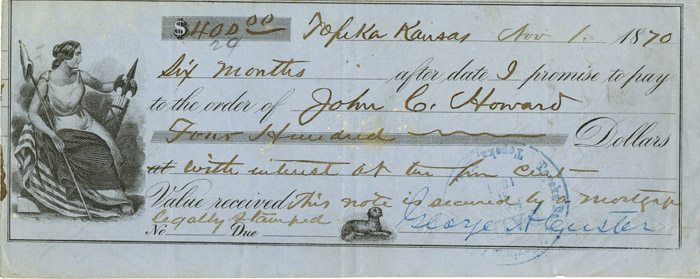 $400 00 Topeka Kansas Nov 1. 1870
20
Six Months after date I promise to pay
to the order of John C. Howard
Four Hundred Dollars
at with interest at ten per cent
Value received This note is secured by a Mortgage
legally stamped George
No Due
Topeka